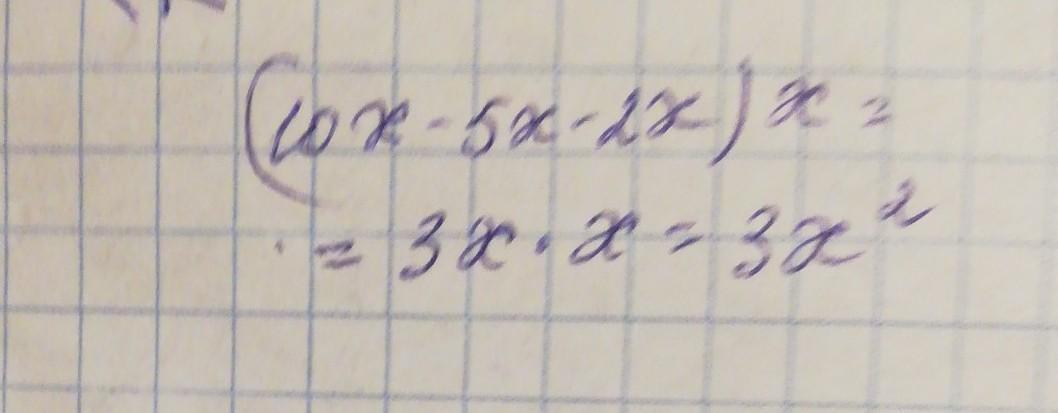 (10x - 5x - 2x)x =
= 3x · x = 3x²